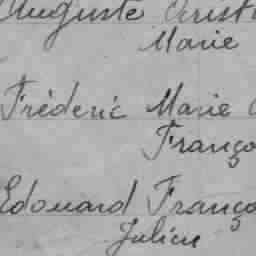 Auguste Arist
Marie
Fréderic Marie
Franço
Edouard Franço
Julien